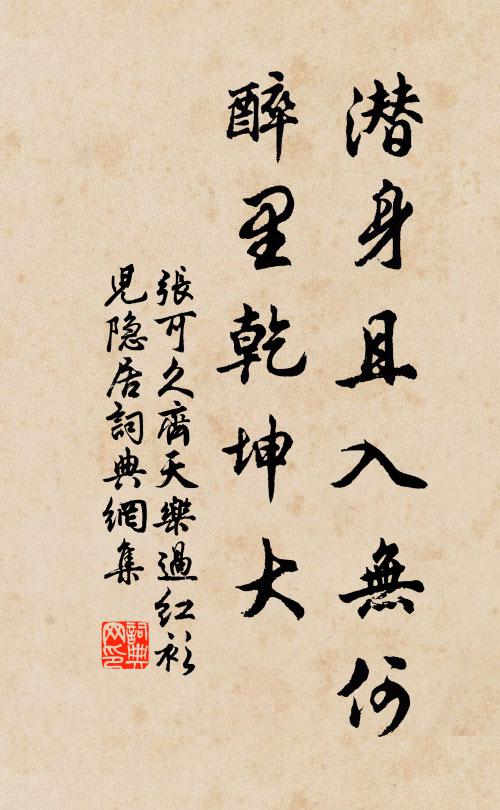 潜身且入無何
醉里乾坤大
張可久齊天樂過红衫
児隐居詞典網集
詞典网印